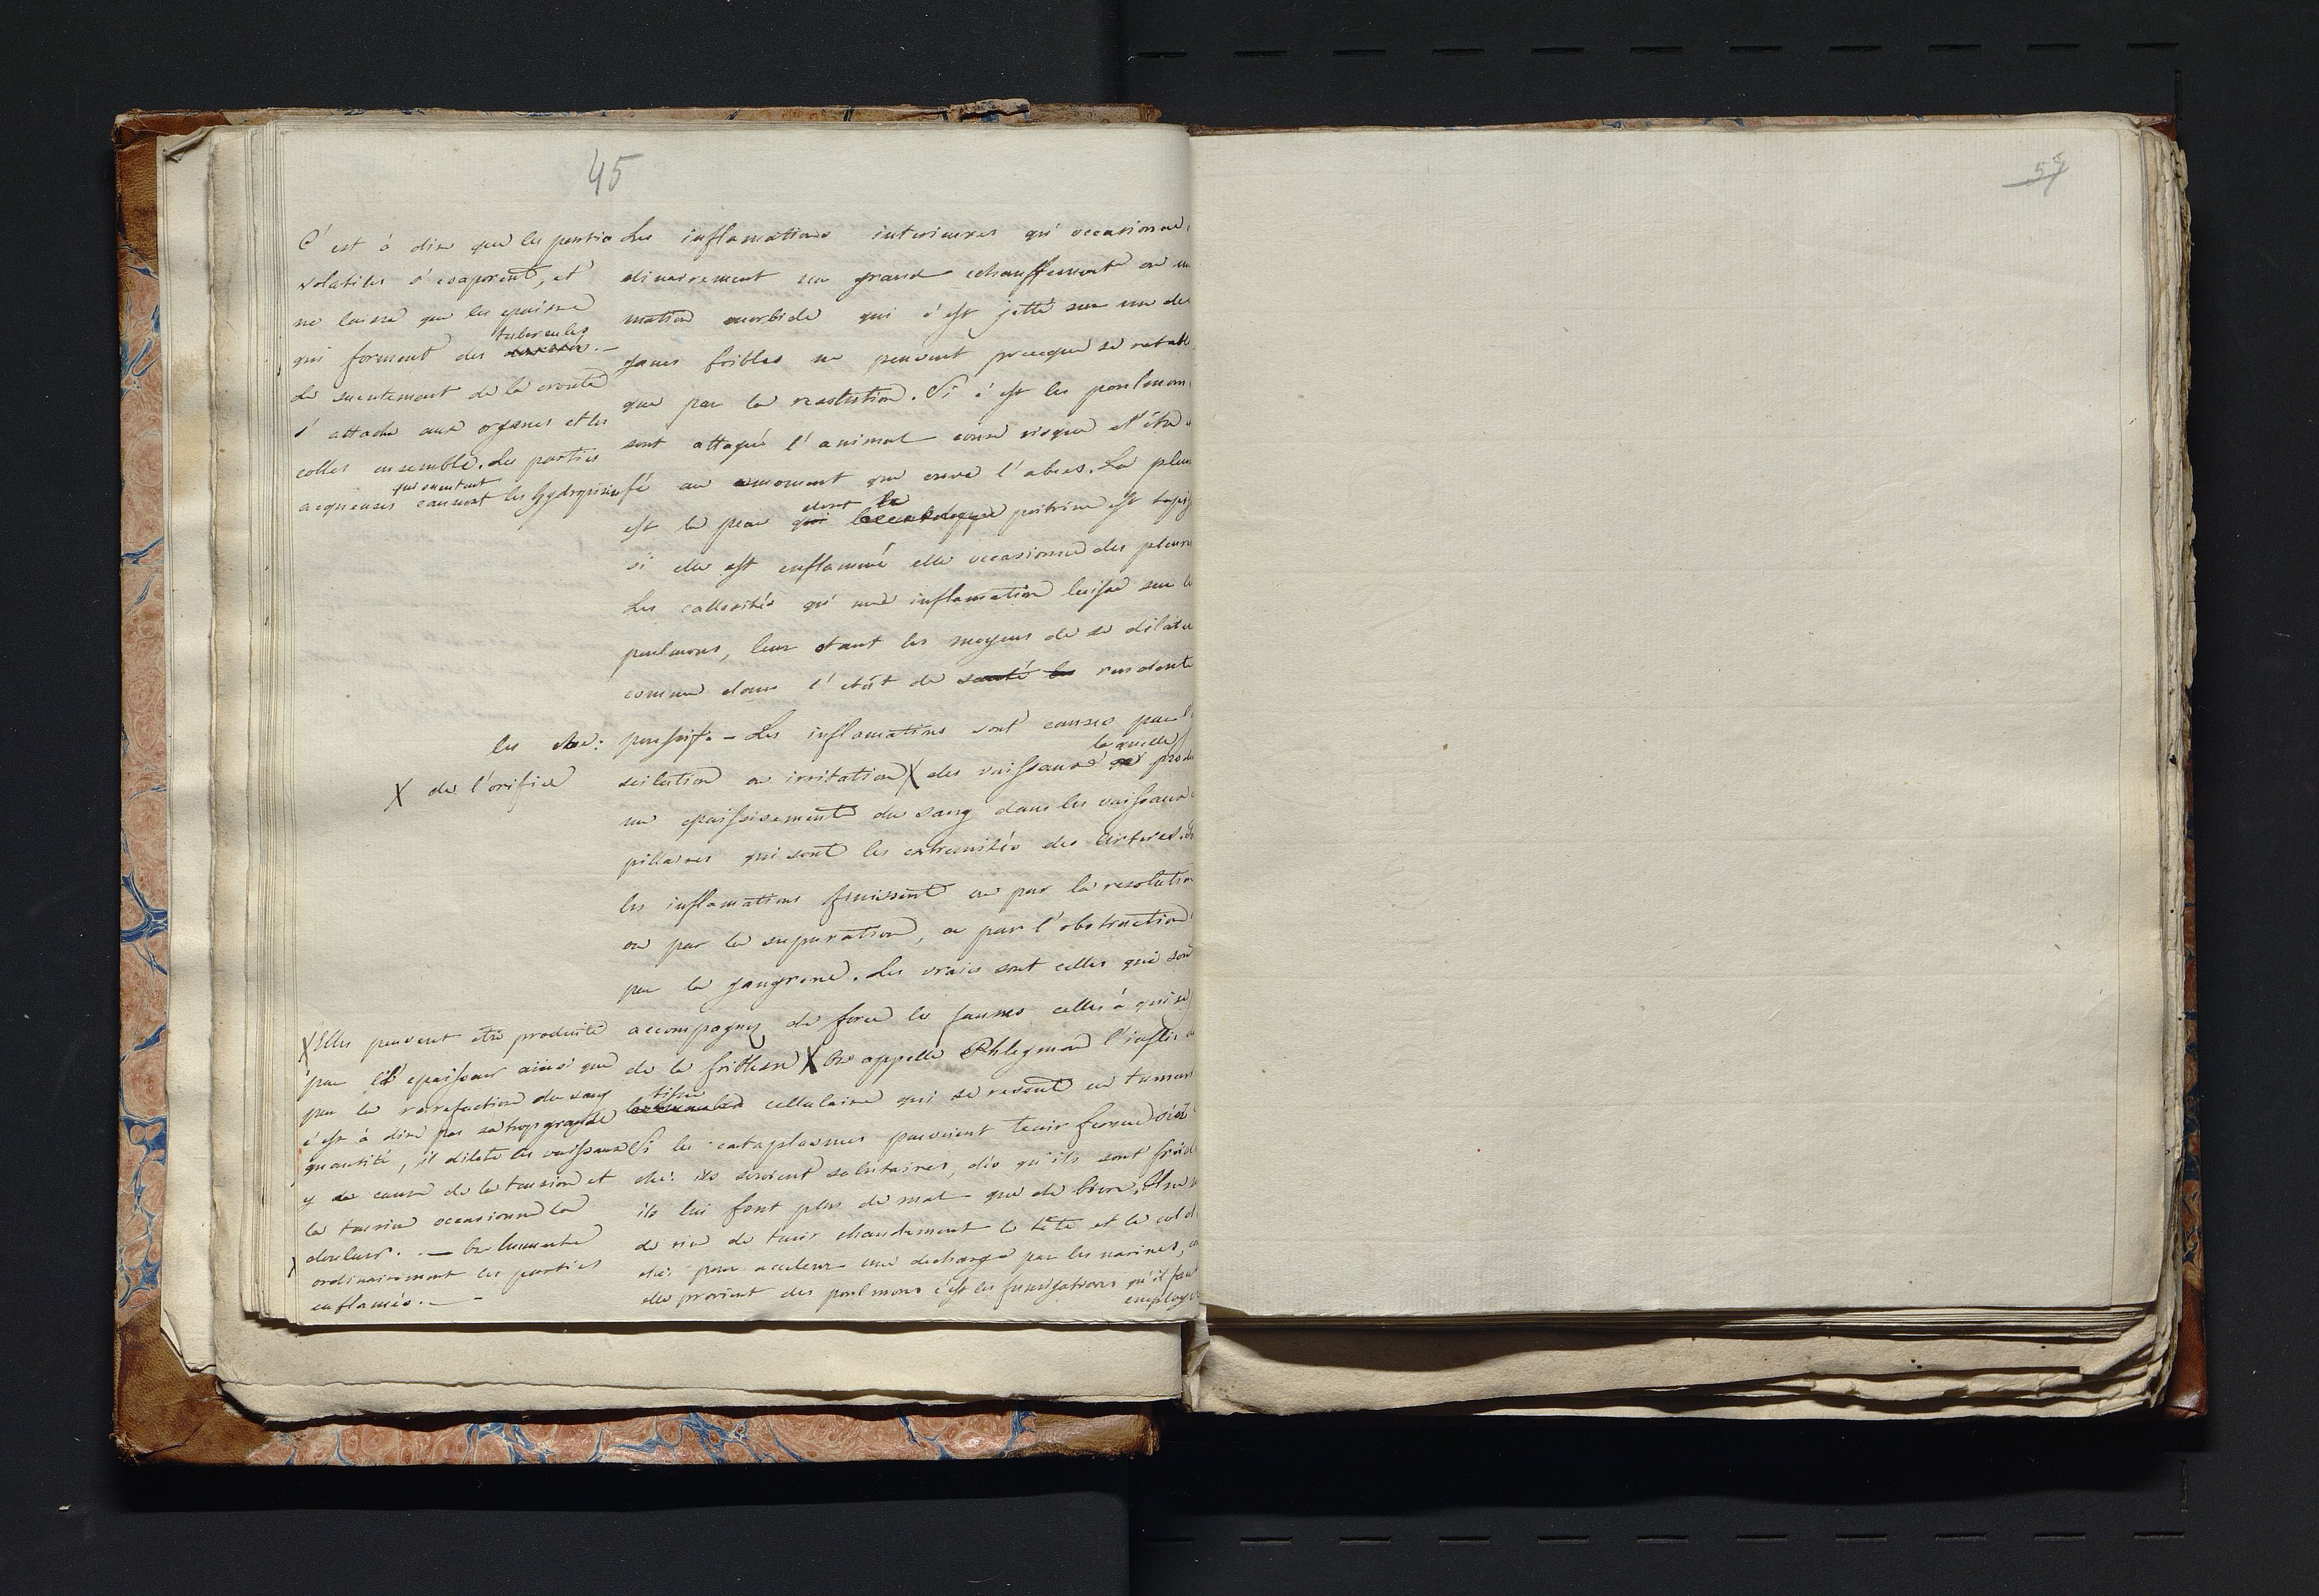 45
57
C'est à dire que les partie
volatiles s'evaporent, et
ne laisse que les epaisse
qui forment des tubercules
le suentement de la croute
s'attache aux organes et les
colles ensemble. Les parties
acqueuses qui suentent causent les hydropisie
les che:
X de l'orifice
X Elles peuvent etre produite
par l'epaisseur ainsi que
par la rarefaction du sang
c'est à dire par sa trop grande
quantité, il dilate les vaisseaux
y cause de la tension et
la tension occasionne la
douleur. — On humecte
ordinairement les parties
enflamées. —
Les inflamations interieures qu'occasionne
dinairement un grand echauffement ou un
matiere morbide qui s'est jetté sur un de
ganes foibles ne peuvent presque se retabl
que par la resolution. Si c'est les poulmon
sont attaqué l'animal coure risque d'être
fé au moment que creve l'abces. La pleu
est la peau dont la poitrine est tapis
si elle est enflammé elle occasionne des pleure
Les callosités qu'une inflamation laisse sur le
poulmons, leur otant les moyens de se dilater
comme dans l'etat de santé les rendent
poussif. — Les inflamations sont causes par l'
scilation ou irritation X des vaisseaux la quelle prod
un epaississement du sang dans les vaisseaux
pillaires qui sont les extremités des arteres.
les inflamations finissent ou par la resolution
ou par la supuration, ou par l'obstruction
par la gangrene. Les vraies sont celles qui son
accompagnez de force les fausses celles à qui se
de la foiblesse X On appelle Phlegmon l'infl:
tissu cellulaire qui se resout en tumeur
Si les cataplasmes pouvoient tenir ferme
che: ils seroient salutaires, dès qu'ils sont froid
ils lui font plus de mal que de bien. Il ne
de rien de tenir chaudement la tête et le col
che: pour accelerer une decharge par les narines,
elle provient des poulmons c'est les fumigations qu'il fau
employe